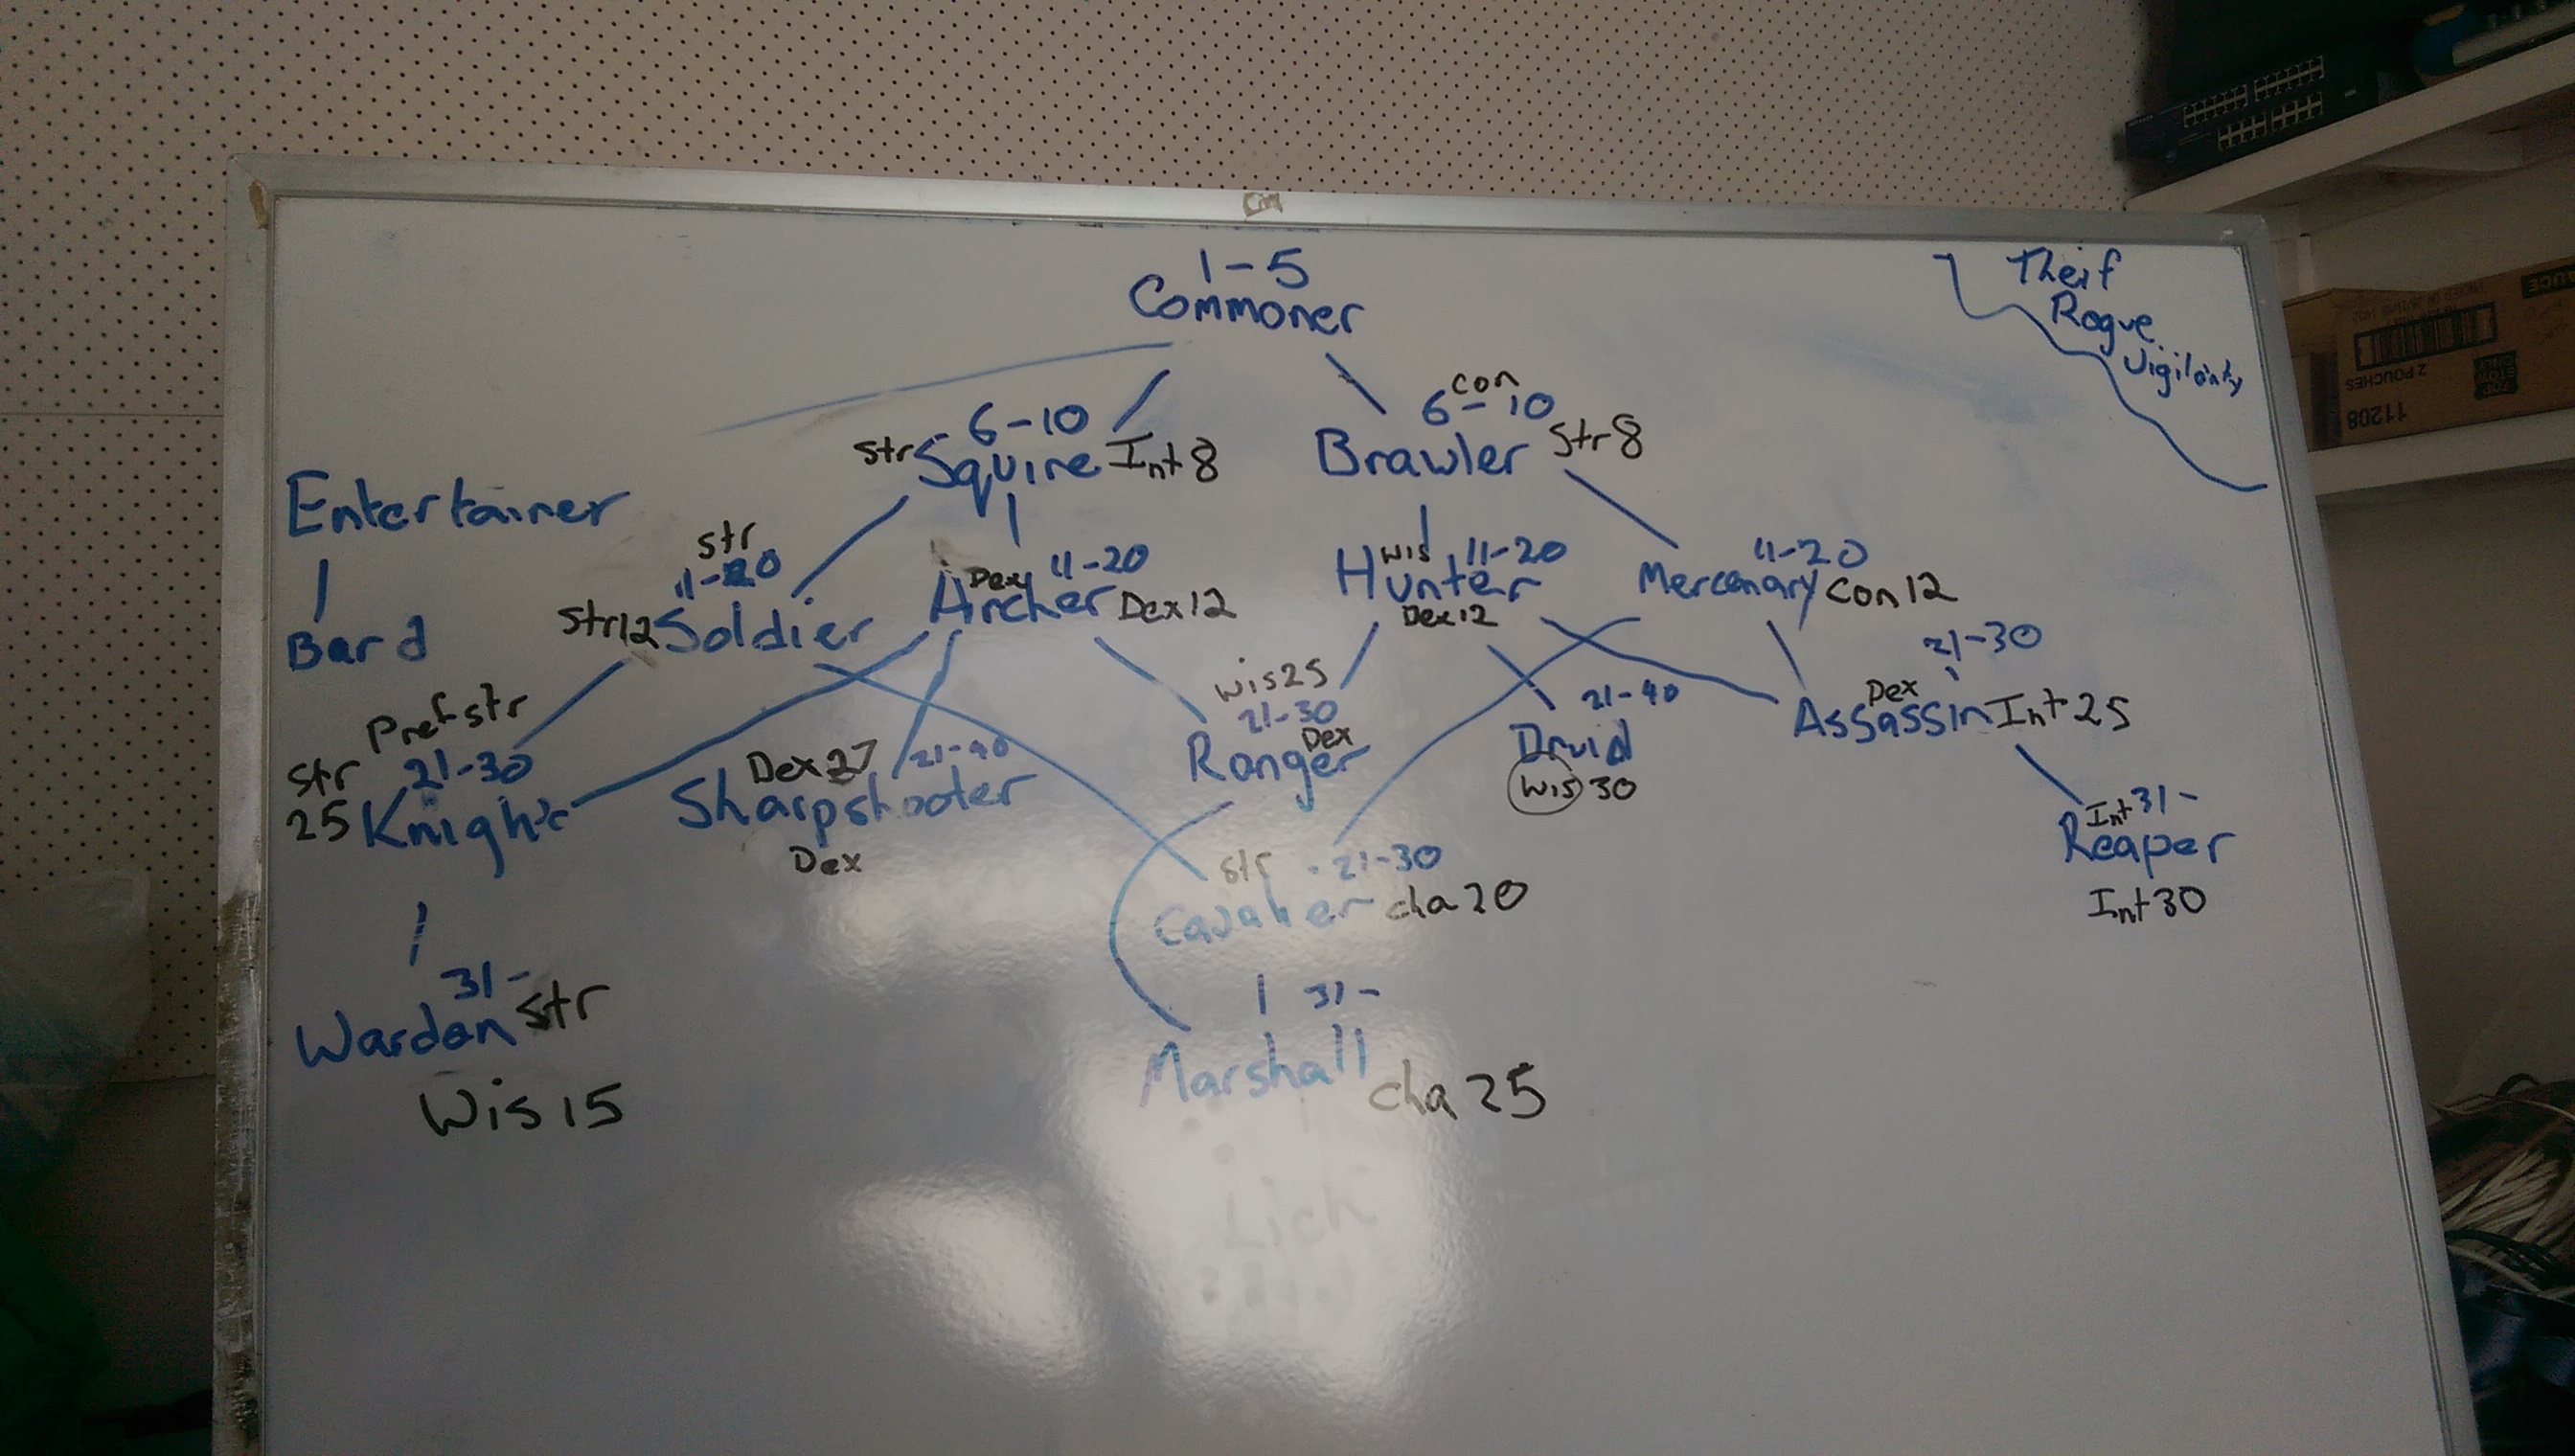 1-5
Commoner
Theif
Rogue
Vigilanty
6-10
Str Squire Int 8
con
6-10
Brawler Str 8
Entertainer
Bard
Str
11-20
Str12 Soldier
Dex 11-20
Archer Dex 12
wis 11-20
Hunter
Dex 12
11-20
Mercenary Con 12
Pref str
Str 21-30
25 Knight
Dex 27 21-40
Sharpshooter
Dex
Wis 25
21-30
Dex
Ranger
21-40
Druid
Wis 30
21-30
Dex
Assassin Int 25
Int 31-
Reaper
Int 30
str 21-30
Cavalier cha 20
31-
Warden Str
Wis 15
31-
Marshall
cha 25
Lich
2 POUCHES
11208